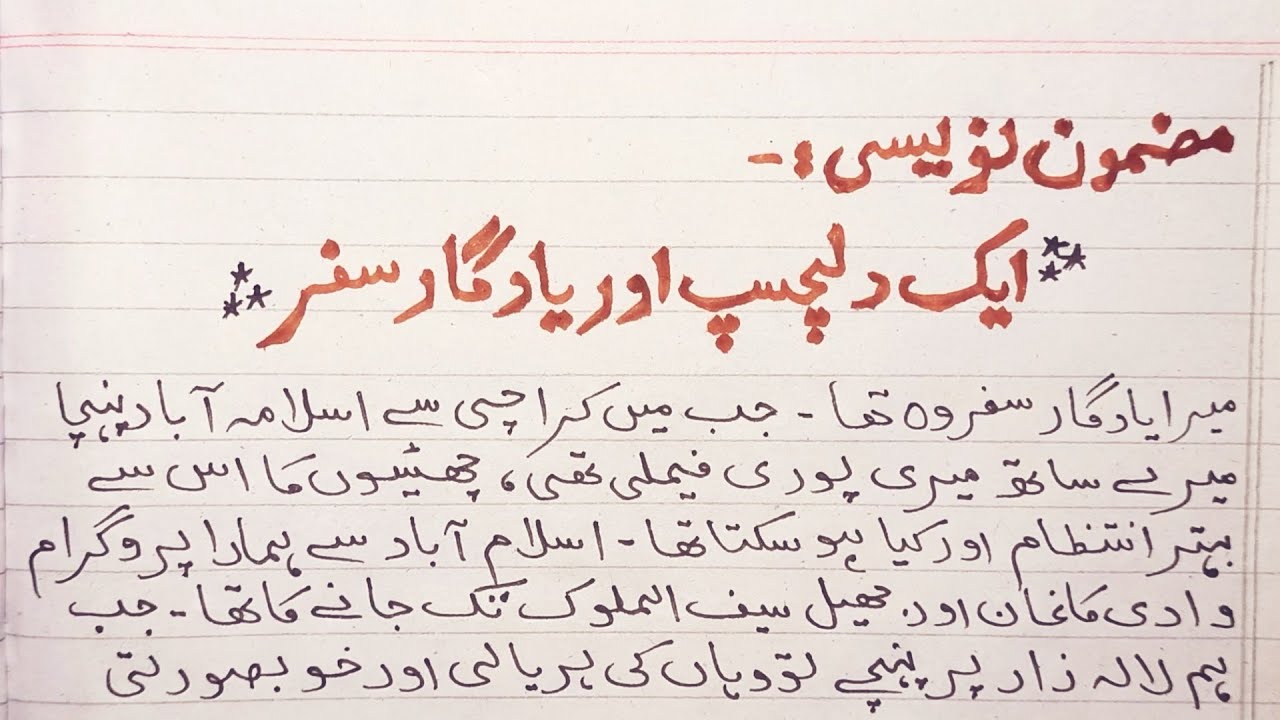 مضمون نویسی :-
ایک دلچسپ اور یادگار سفر
میرا یادگار سفر وہ تھا - جب میں کراچی سے اسلام آباد پہنچا
میرے ساتھ میری پوری فیملی تھی ، چھٹیوں کا اس سے
بہتر انتظام اور کیا ہو سکتا تھا - اسلام آباد سے ہمارا پروگرام
وادی کاغان اور جھیل سیف الملوک تک جانے کا تھا - جب
ہم لالہ زار پر پہنچے تو وہاں کی ہریالی اور خوبصورتی